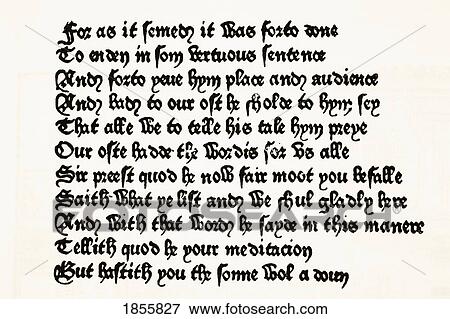 For as it semedy it was forto done
To enden in som vertuous sentence
And forto yeue hym place and audience
And bady to our ost he sholde to hym sey
That alle we to telle his tale hym preye
Our oste hadde the wordis for vs alle
Sir preest quod he now fair moot you befalle
Saith what ye list and we shul gladly here
And with that word he sayde in this manere
Tellith quod he your meditacion
But hastith you the sonne wol a doun
FOTOSEARCH
1855827 www.fotosearch.com